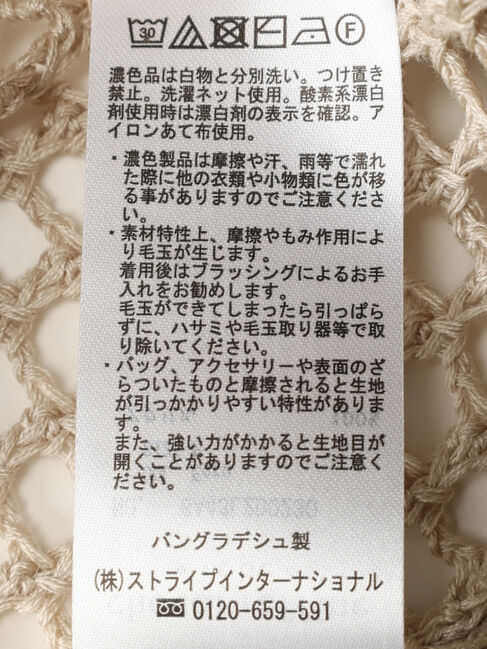 30 F
濃色品は白物と分別洗い。つけ置き
禁止。洗濯ネット使用。酸素系漂白
剤使用時は漂白剤の表示を確認。ア
イロンあて布使用。
・濃色製品は摩擦や汗、雨等で濡れ
た際に他の衣類や小物類に色が移
る事がありますのでご注意くださ
い。
・素材特性上、摩擦やもみ作用によ
り毛玉が生じます。
着用後はブラッシングによるお手
入れをお勧めします。
毛玉ができてしまったら引っぱら
ずに、ハサミや毛玉取り器等で取
り除いてください。
・バッグ、アクセサリーや表面のざ
らついたものと摩擦されると生地
が引っかかりやすい特性がありま
す。
また、強い力がかかると生地目が
開くことがありますのでご注意く
ださい。
バングラデシュ製
(株)ストライプインターナショナル
0120-659-591